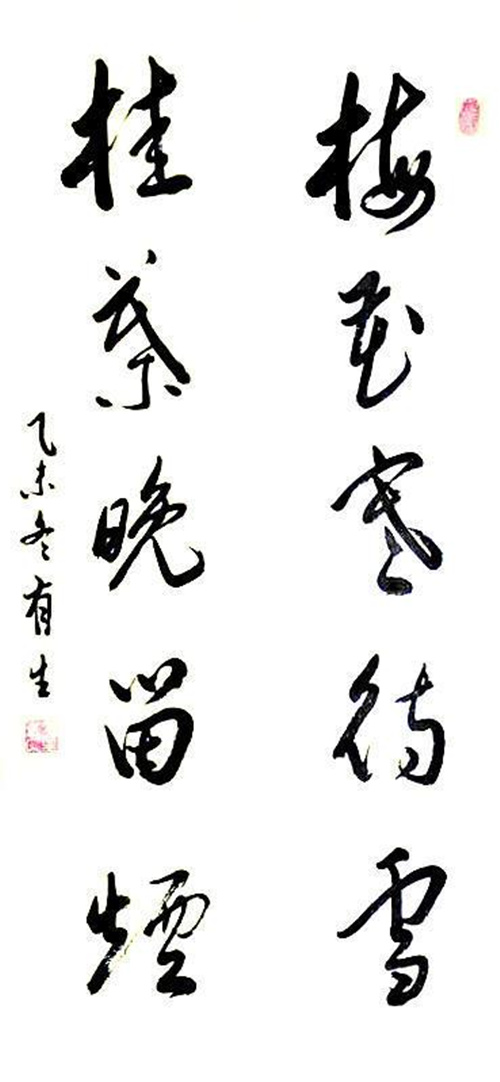 梅花寒待雪
桂叶晚留煙
乙未冬有生